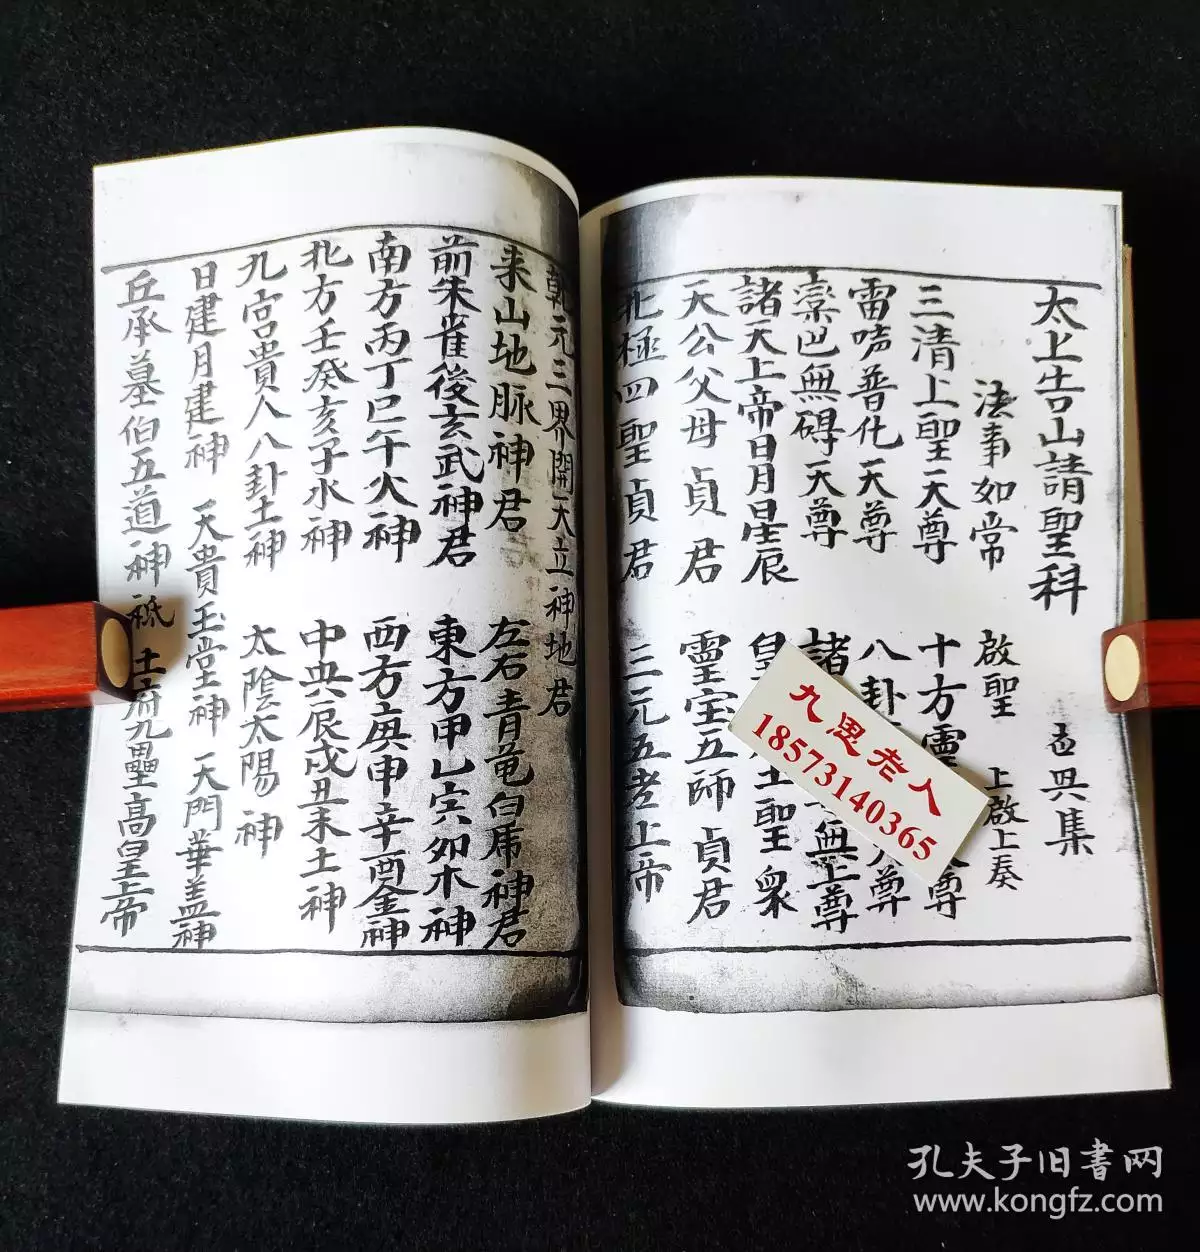 太上告山請聖科 孟興集
法事如常 啟聖 上啟上奏
三清上聖天尊 十方靈 尊
雷聲普化天尊 八卦 尊
橐巴無碍天尊 諸 無上尊
諸天上帝日月星辰 皇 土聖衆
天公父母貞君 靈宝五師貞君
北極四聖貞君 三元五老上帝
乾元三界開天立神地君
来山地脉神君 左右青竜白虎神君
前朱雀後玄武神君 東方甲乙寅卯木神
南方丙丁巳午火神 西方庚申辛酉金神
北方壬癸亥子水神 中央辰戌丑未土神
九宫貴人八卦土神 太陰太陽神
日建月建神 天貴玉堂神 天門華盖神
丘承墓伯五道神祗 土府九壘高皇上帝
九思老人
18573140365
孔夫子旧書网
www.kongfz.com